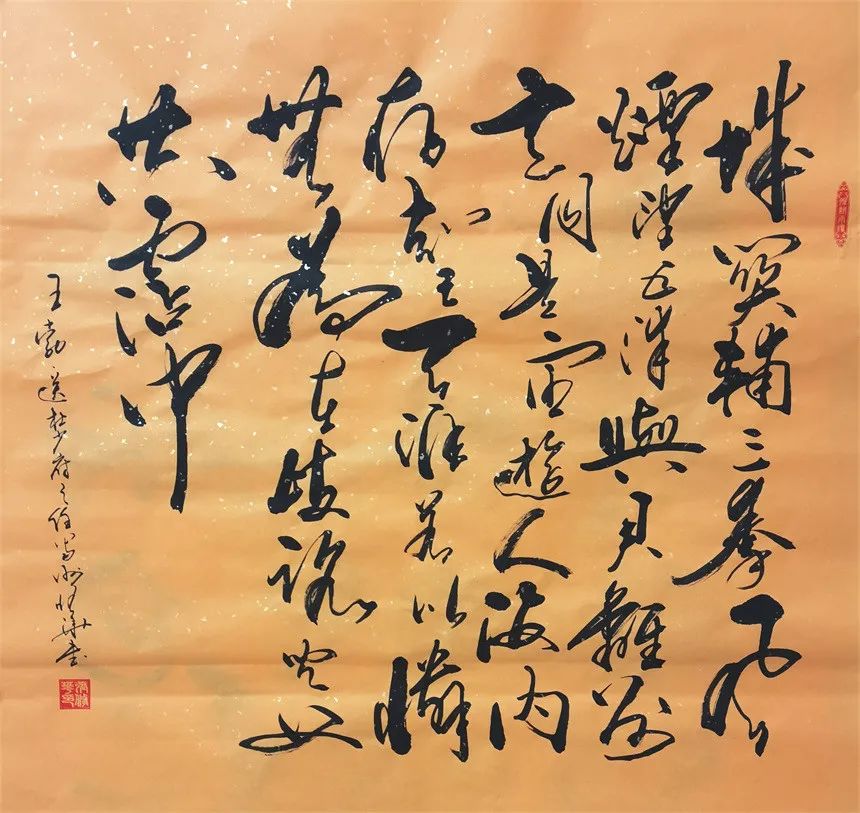 城闕輔三秦風
煙望五津與君離別
意同是宦遊人海内
存知己天涯若比隣
無為在歧路兒女
共霑巾
王勃送杜少府之任蜀州 華書